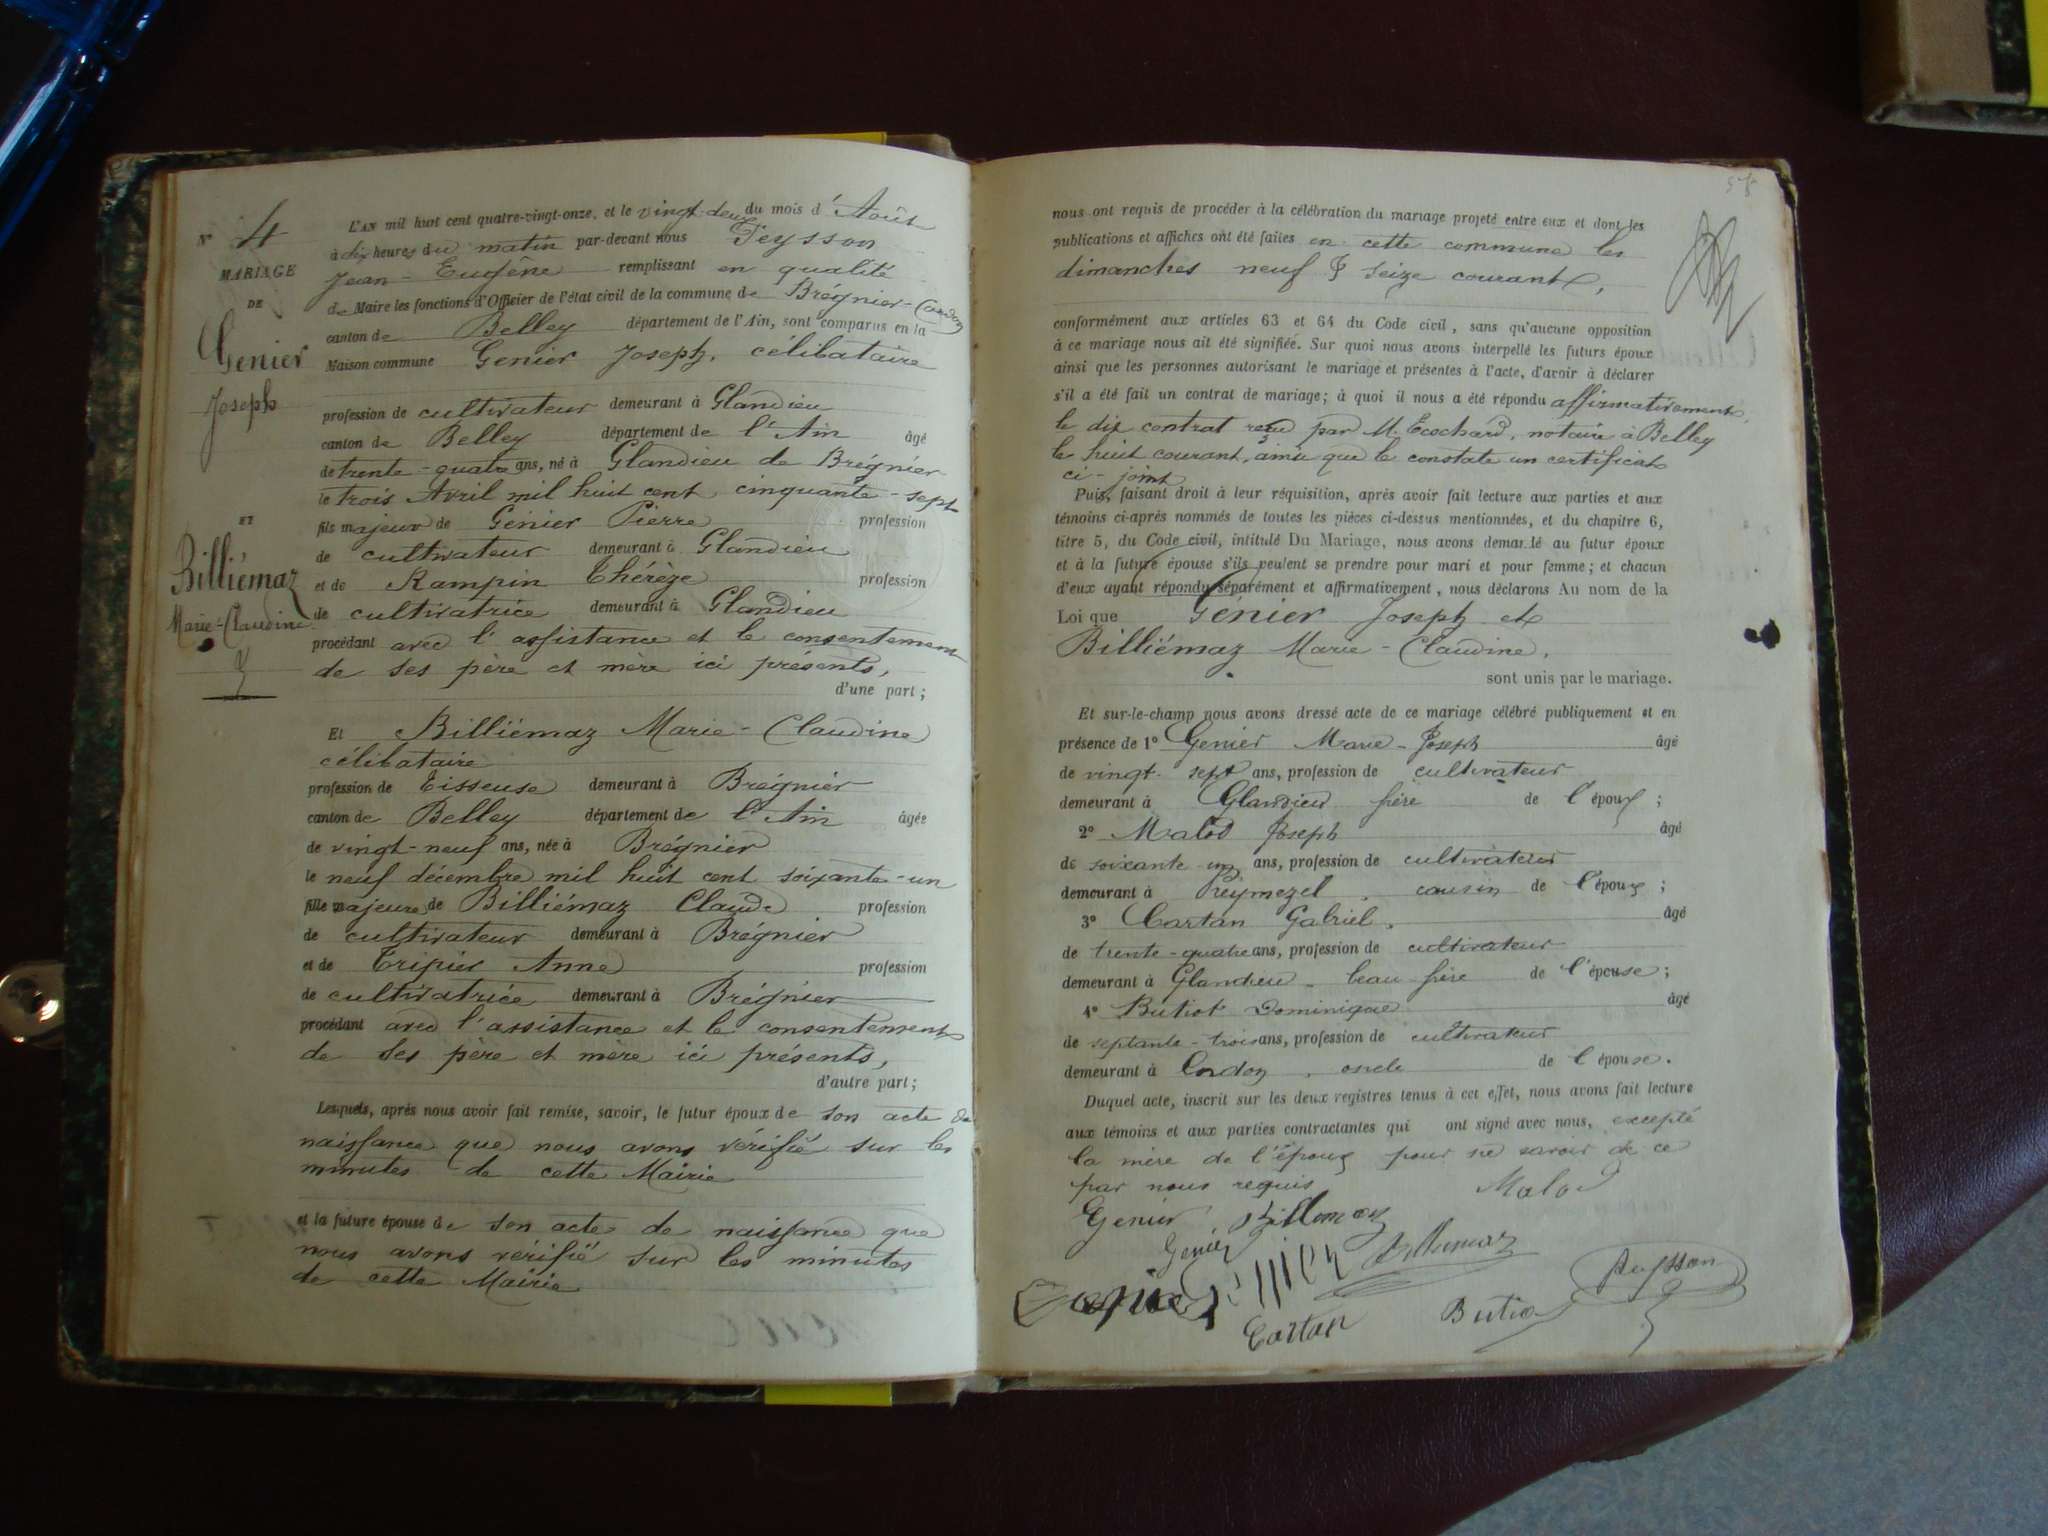 N° 4
MARIAGE
DE
Genier
Joseph
ET
Billiémaz
Marie-Claudine
L'AN mil huit cent quatre-vingt-onze, et le vingt-deux du mois d'Août
à dix heures du matin par-devant nous Peysson
Jean-Eugène remplissant en qualité
de Maire les fonctions d'Officier de l'état civil de la commune de Brégnier-Cordon
canton de Belley département de l'Ain, sont comparus en la
Maison commune Genier Joseph, célibataire
profession de cultivateur demeurant à Glandieu
canton de Belley département de l'Ain âgé
de trente-quatre ans, né à Glandieu de Brégnier
le trois Avril mil huit cent cinquante-sept
fils majeur de Génier Pierre profession
de cultivateur demeurant à Glandieu
et de Rampin Thérèze profession
de cultivatrice demeurant à Glandieu
procédant avec l'assistance et le consentement
de ses père et mère ici présents,
d'une part ;
Et Billiémaz Marie-Claudine
célibataire
profession de Tisseuse demeurant à Brégnier
canton de Belley département de l'Ain âgée
de vingt-neuf ans, née à Brégnier
le neuf décembre mil huit cent soixante-un
fille majeure de Billiémaz Claude profession
de cultivateur demeurant à Brégnier
et de Tripier Anne profession
de cultivatrice demeurant à Brégnier
procédant avec l'assistance et le consentement
de ses père et mère ici présents,
d'autre part ;
Lesquels, après nous avoir fait remise, savoir, le futur époux de son acte de
naissance que nous avons vérifié sur les
minutes de cette Mairie
et la future épouse de son acte de naissance que
nous avons vérifié sur les minutes
de cette Mairie
nous ont requis de procéder à la célébration du mariage projeté entre eux et dont les
publications et affiches ont été faites en cette commune les
dimanches neuf & seize courant,
conformément aux articles 63 et 64 du Code civil, sans qu'aucune opposition
à ce mariage nous ait été signifiée. Sur quoi nous avons interpellé les futurs époux
ainsi que les personnes autorisant le mariage et présentes à l'acte, d'avoir à déclarer
s'il a été fait un contrat de mariage ; à quoi il nous a été répondu affirmativement,
le dix contrat reçu par M. Ecochard, notaire à Belley
le huit courant, ainsi que le constate un certificat
ci-joint
Puis, faisant droit à leur réquisition, après avoir fait lecture aux parties et aux
témoins ci-après nommés de toutes les pièces ci-dessus mentionnées, et du chapitre 6,
titre 5, du Code civil, intitulé Du Mariage, nous avons demandé au futur époux
et à la future épouse s'ils veulent se prendre pour mari et pour femme ; et chacun
d'eux ayant répondu séparément et affirmativement, nous déclarons Au nom de la
Loi que Génier Joseph et
Billiémaz Marie-Claudine,
sont unis par le mariage.
Et sur-le-champ nous avons dressé acte de ce mariage célébré publiquement et en
présence de 1° Genier Marie-Joseph âgé
de vingt-sept ans, profession de cultivateur
demeurant à Glandieu frère de l'époux ;
2° Malod Joseph âgé
de soixante-un ans, profession de cultivateur
demeurant à Peymezel, cousin de l'époux ;
3° Cartan Gabriel, âgé
de trente-quatre ans, profession de cultivateur
demeurant à Glandieu beau-frère de l'épouse ;
4° Butiot Dominique âgé
de septante-trois ans, profession de cultivateur
demeurant à Cordon, oncle de l'épouse.
Duquel acte, inscrit sur les deux registres tenus à cet effet, nous avons fait lecture
aux témoins et aux parties contractantes qui ont signé avec nous, excepté
la mère de l'époux pour ne savoir de ce
par nous requis
Malod
Genier Billiemaz
Genier Billiemaz
Peysson
Genier
Cartan
Butiot